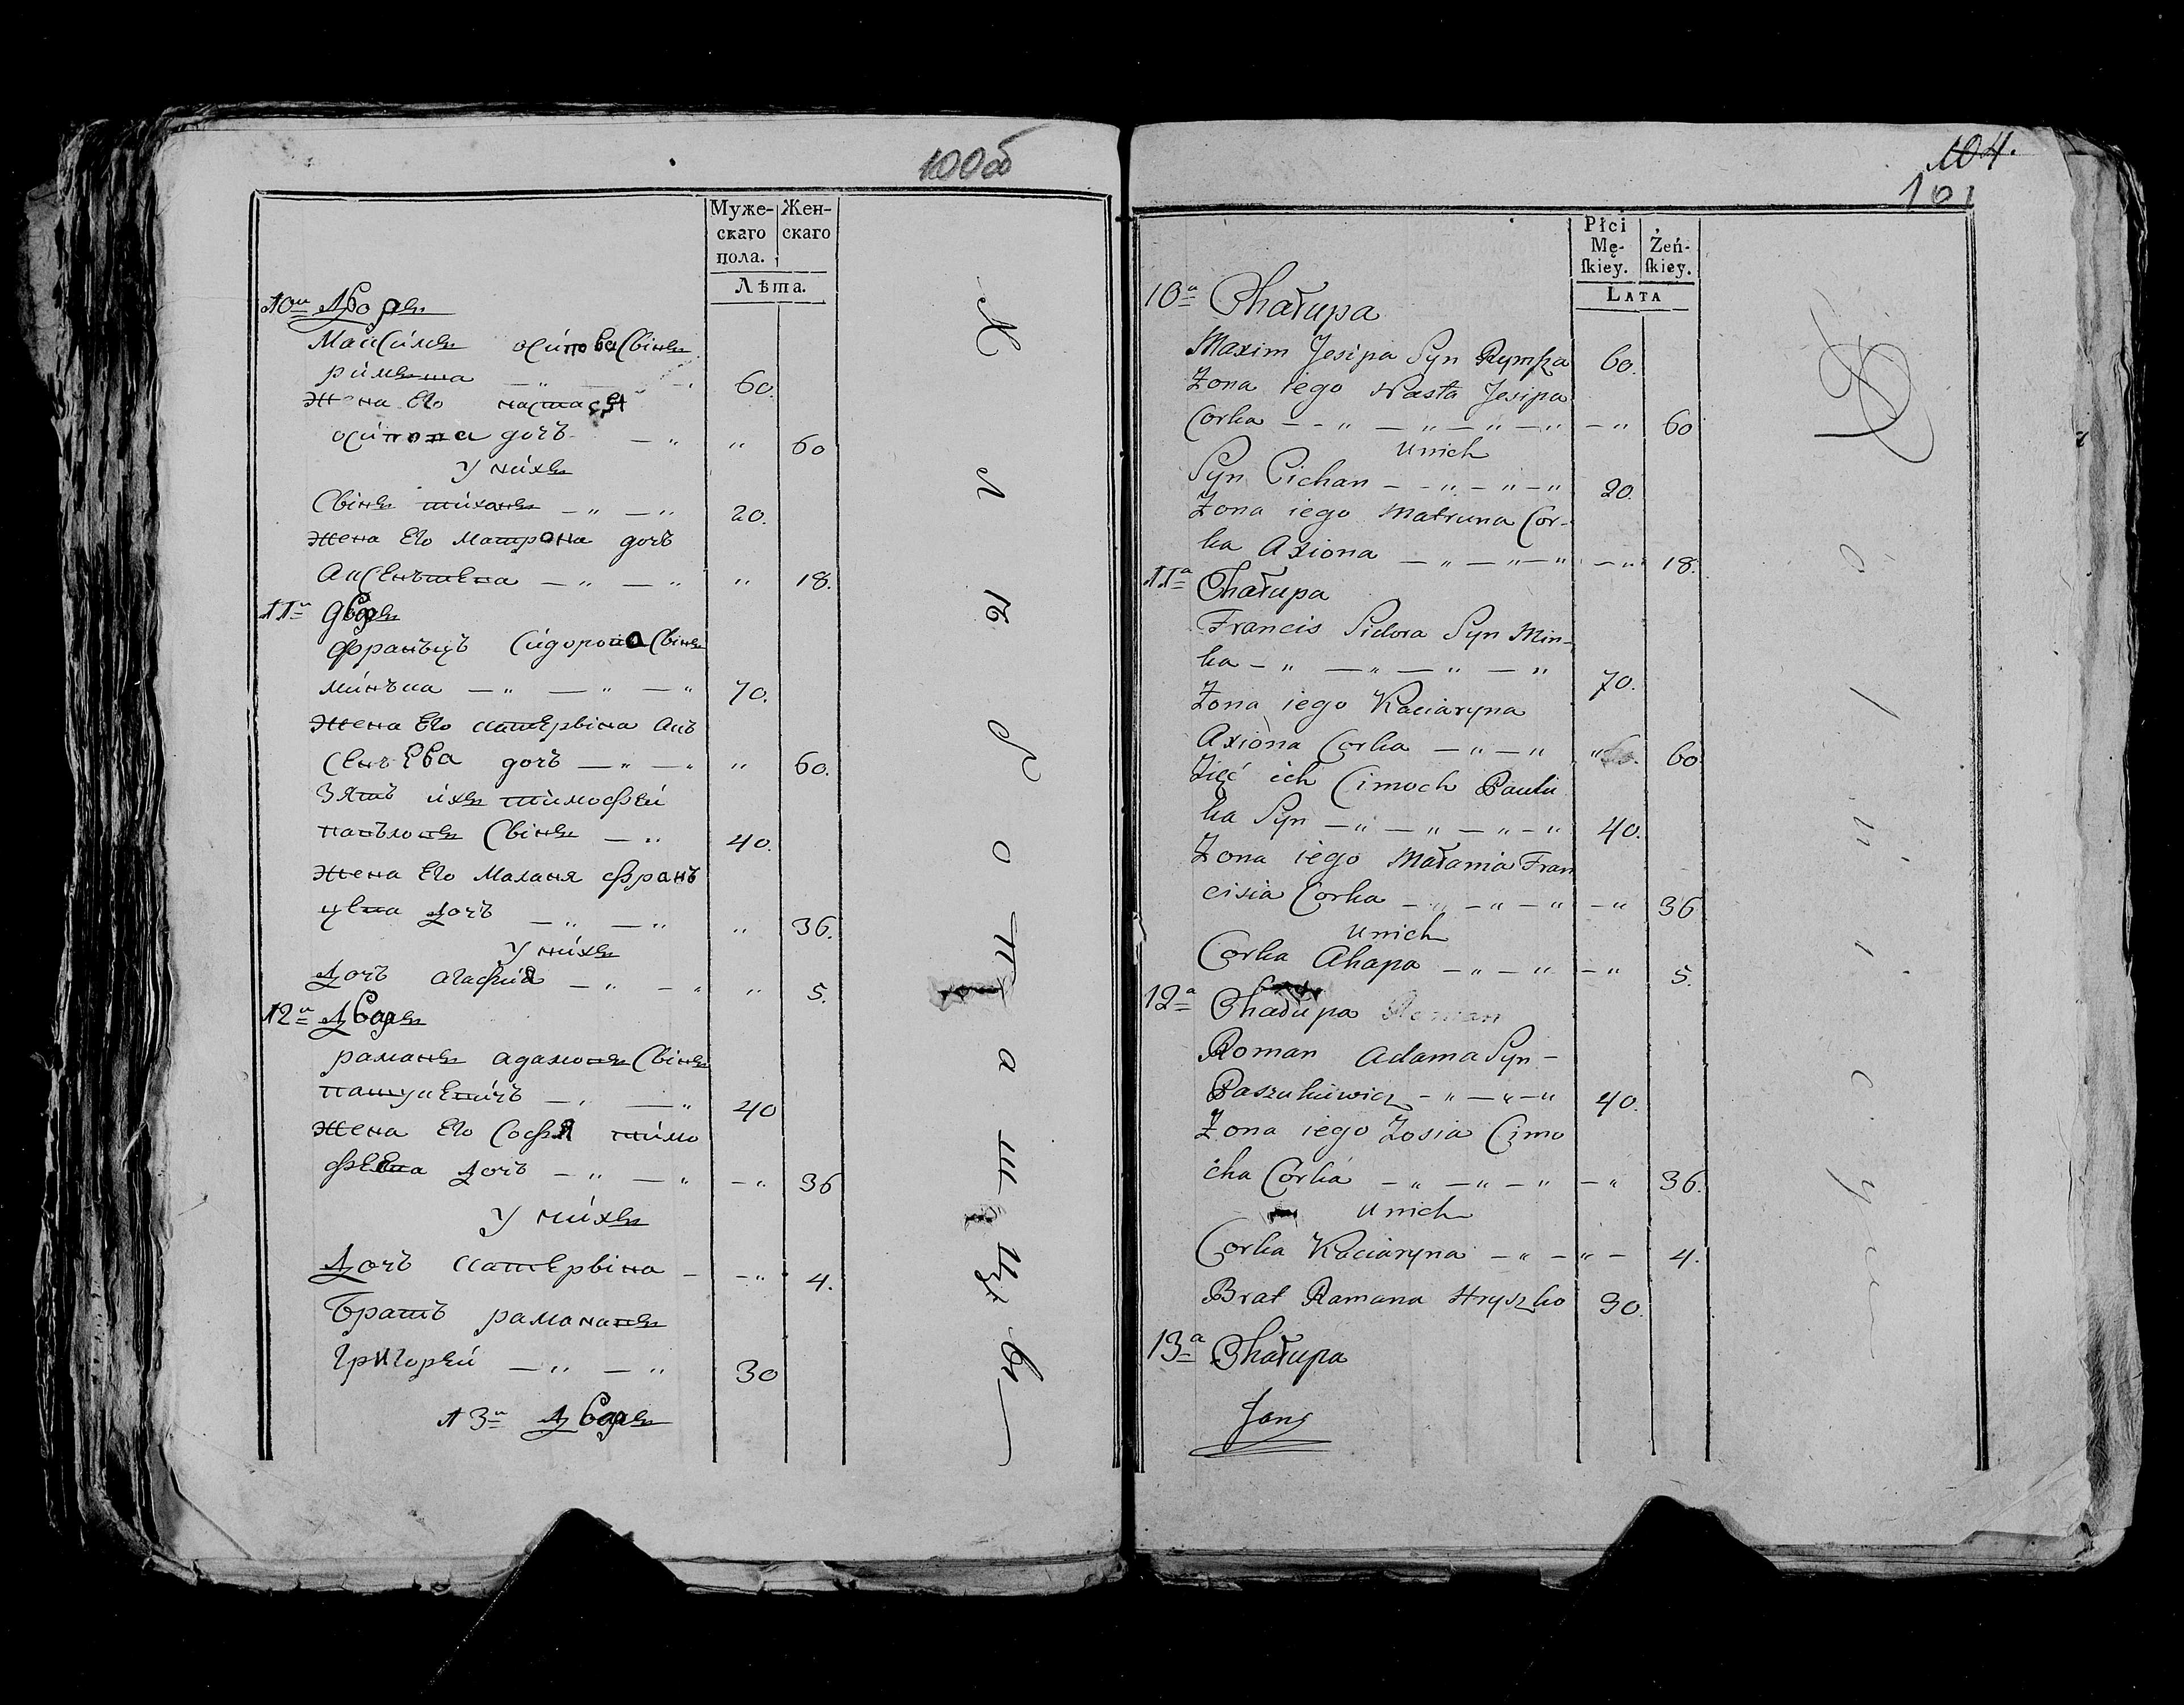 100об
Муже-
скаго
пола.
Жен-
скаго
Лѣта.
10й Дворъ
Максимъ осиповъ Свінъ
римша — " — " 60.
Жена Его настасья
осипова дочъ — " " 60
У нихъ
Свінъ тиханъ — " — " 20.
Жена Его Матрона дочъ
Аксеньтева — " — " " 18.
11й дворъ
францъ Сидорова Свінъ
минъка — " — " — " 70.
Жена Его катервіна акъ
сеньева дочъ — " — " " 60.
Зять ихъ тимофей
павъловъ Свінъ — " 40.
Жена Его Маланя францъ
цева дочъ — " — " " 36.
У нихъ
Дочъ агафия — " — " " 5.
12й Дворъ
раманъ адамовъ Свінъ
пашукевичъ — " — " 40
Жена Его Софья тимо
феева дочъ — " — " — " 36
У нихъ
Дочъ катервіна — — " 4.
Братъ рамановъ
григорей — " — " 30
13й Дворъ
104.
101
Płci
Mę-
skiey.
Żeń-
skiey.
LATA
10a Chałupa
Maxim Jesipa Syn Rymsza 60.
Zona iego Nasta Jesipa
Corka — — " — " — " — " — " 60
U nich
Syn Cichan — — " — " — " 20.
Zona iego Matruna Cor-
ka Axiona — " — " — " — " 18.
11a Chałupa
Francis Sidora Syn Min-
ka — " — " — " — " 70.
Zona iego Kaciaryna
Axiona Corka — " — " " 60
Zięć ich Cimoch Paułu
ka Syn — " — " — " — " 40.
Zona iego Małania Fran
cisia Corka — " — " — " — " 36
U nich
Corka Ahapa — " — " — " 5.
12a Chałupa
Roman Adama Syn —
Paszukiewicz — " — " — " 40.
Zona iego Zosia Cimo
cha Corka — " — " — " — " 36.
U nich
Corka Kaciaryna — " — " — 4.
Brat Ramana Hryszko 30.
13a Chałupa